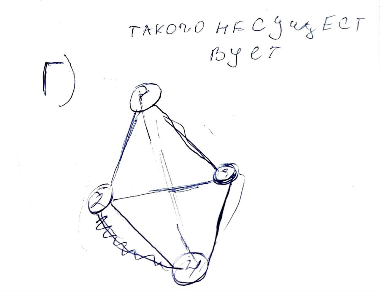 ТАКОГО НЕ СУЩЕСТ
ВУЕТ
Г)